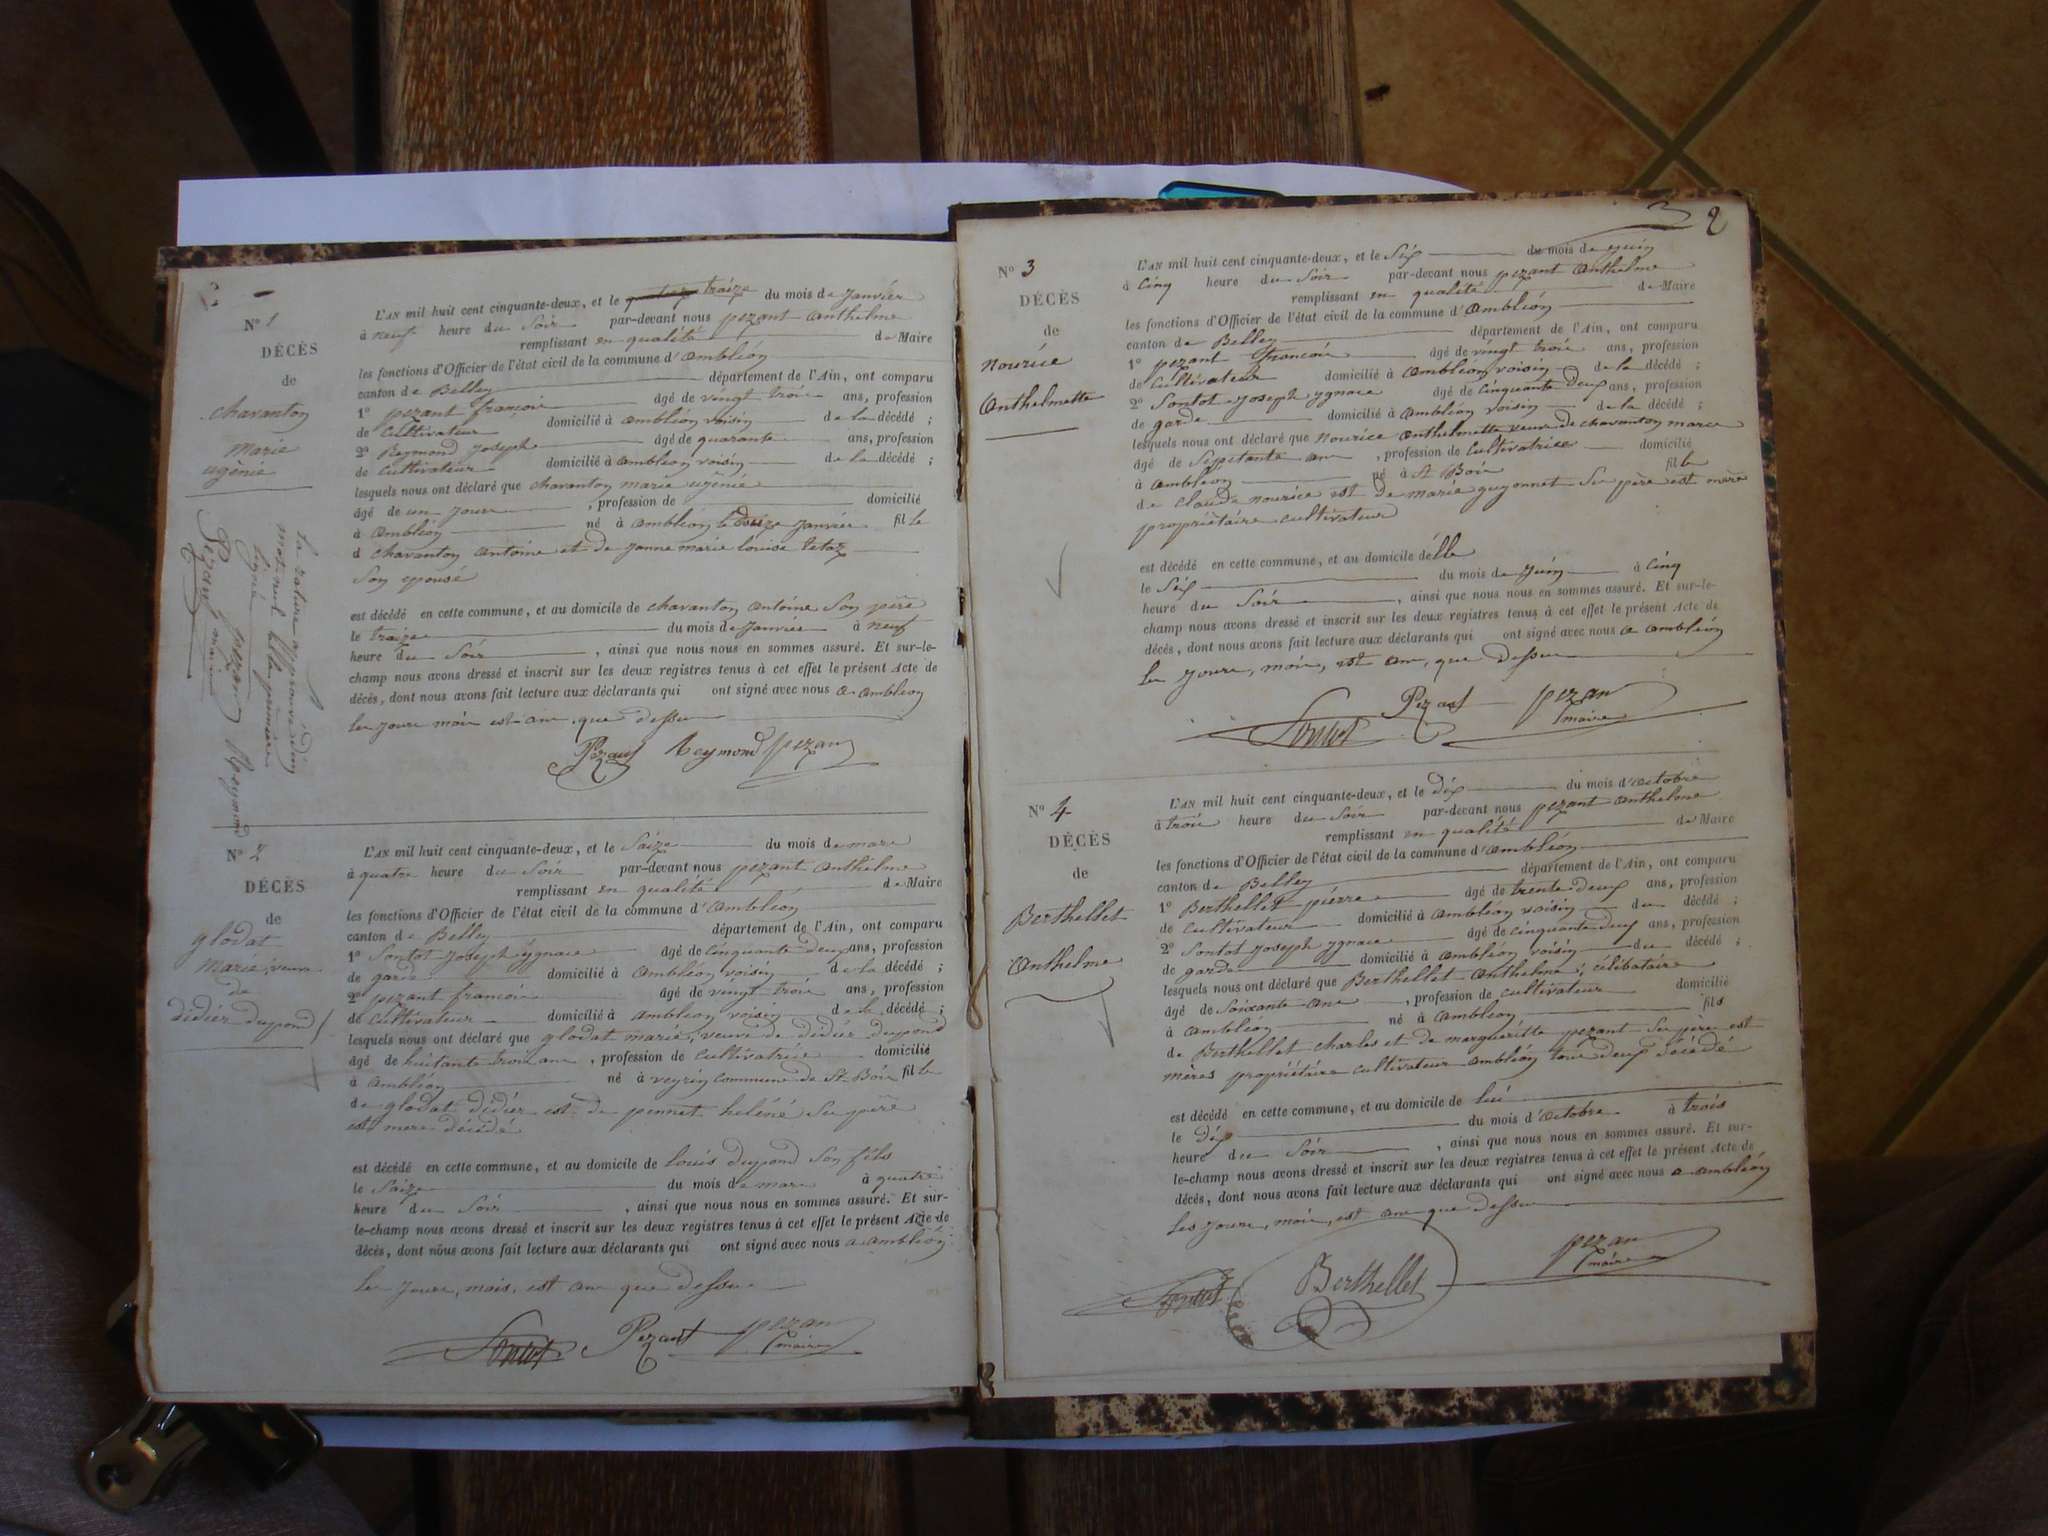 N° 1
DÉCÈS
de
chavanton
marie
ugènie
La rature approuvée dun
mot nul
Reymond
pezan
Pezant
maire
L'AN mil huit cent cinquante-deux, et le traize du mois de Janvier
à neuf heure du Soir par-devant nous pezant anthelme
remplissant en qualité de Maire
les fonctions d'Officier de l'état civil de la commune d'ambléon
canton de Belley département de l'Ain, ont comparu
1° pezant françoi âgé de vingt troie ans, profession
de cultivateur domicilié à ambléon voisin de la décédé ;
2° Reymond Joseph âgé de quarante ans, profession
de cultivateur domicilié à ambleon voisin de la décédé ;
lesquels nous ont déclaré que chavanton marie ugènie
âgé de un Jour , profession de domicilié
à Ambléon né à ambléon le Janvier fille
d chavanton antoine et de Janne marie louise tetaz
Son epousé
est décédé en cette commune, et au domicile de chavanton antoine Son père
le traize du mois de Janvier à neuf
heure du Soir , ainsi que nous nous en sommes assuré. Et sur-le-
champ nous avons dressé et inscrit sur les deux registres tenus à cet effet le présent Acte de
décès, dont nous avons fait lecture aux déclarants qui ont signé avec nous a ambléon
les Jours mois est an que dessu
Pezant Reymond pezan
N° 2
DÉCÈS
de
glodat
Marie, veuve
de
didier dupond
L'AN mil huit cent cinquante-deux, et le Saize du mois de mars
à quatre heure du Soir par-devant nous pezant anthelme
remplissant en qualité de Maire
les fonctions d'Officier de l'état civil de la commune d'ambléon
canton de Belley département de l'Ain, ont comparu
1° Sontot Joseph ygnace âgé de cinquante deux ans, profession
de garde domicilié à Ambléon voisin de la décédé ;
2° pezant françoi âgé de vingt troie ans, profession
de cultivateur domicilié à ambléon voisin de la décédé ;
lesquels nous ont déclaré que glodat marié, veuve de didier dupond
âgé de huitante troie ans , profession de cultivatrice domicilié
à ambléon né à veyrin commune de St Boie fille
de glodat didier est de pennet heléné Se père
est mere décédé
est décédé en cette commune, et au domicile de louis dupond Son fils
le Saize du mois de mars à quatre
heure du Soir , ainsi que nous nous en sommes assuré. Et sur-
le-champ nous avons dressé et inscrit sur les deux registres tenus à cet effet le présent Acte de
décès, dont nous avons fait lecture aux déclarants qui ont signé avec nous a ambléon
les Jours, mois, est an que dessu
Sontot Pezant pezan
maire
2
N° 3
DÉCÈS
de
nourice
Anthelmette
L'AN mil huit cent cinquante-deux, et le Six du mois de Juin
à cinq heure du Soir par-devant nous pezant anthelme
remplissant en qualité de Maire
les fonctions d'Officier de l'état civil de la commune d'ambléon
canton de Belley département de l'Ain, ont comparu
1° pezant françoi âgé de vingt troie ans, profession
de cultivateur domicilié à ambléon voisin de la décédé ;
2° Sontot Joseph ygnace âgé de cinquante deux ans, profession
de garde domicilié à ambléon voisin de la décédé ;
lesquels nous ont déclaré que nourice anthelmette veuve de chavanton marc
âgé de Seppetante an , profession de cultivatrice domicilié
à ambleon né à St Boie fille
de claude nourice est de marie guyonnet Se père est mère
propriétaire cultivateur
est décédé en cette commune, et au domicile délle
le Six du mois de Juin à cinq
heure du Soir , ainsi que nous nous en sommes assuré. Et sur-le-
champ nous avons dressé et inscrit sur les deux registres tenus à cet effet le présent Acte de
décès, dont nous avons fait lecture aux déclarants qui ont signé avec nous a ambléon
les Jours, mois, est an, que dessu
Sontot Pezant pezan
maire
N° 4
DÉCÈS
de
Berthellet
Anthelme
L'AN mil huit cent cinquante-deux, et le dix du mois d'octobre
à troie heure du Soir par-devant nous pezant anthelme
remplissant en qualité de Maire
les fonctions d'Officier de l'état civil de la commune d'ambléon
canton de Belley département de l'Ain, ont comparu
1° Berthellet pierre âgé de trente deux ans, profession
de cultivateur domicilié à ambléon voisin du décédé ;
2° Sontot Joseph ygnace âgé de cinquante deux ans, profession
de garde domicilié à ambléon voisin du décédé ;
lesquels nous ont déclaré que Berthellet anthelme, célibataire
âgé de Soixante ans , profession de cultivateur domicilié
à ambléon né à ambléon fils
de Berthellet charles et de marguéritte pezant Se père est
mères propriétaire cultivateur ambléon tous deux décédé
est décédé en cette commune, et au domicile de lui
le dix du mois d'octobre à trois
heure du Soir , ainsi que nous nous en sommes assuré. Et sur-
le-champ nous avons dressé et inscrit sur les deux registres tenus à cet effet le présent Acte de
décès, dont nous avons fait lecture aux déclarants qui ont signé avec nous a ambléon
les Jours, mois, est an que dessu
Sontot Berthellet pezan
maire